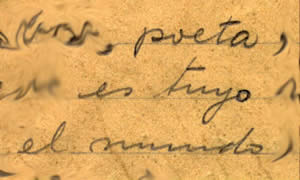 poeta,
es tuyo
el mundo,